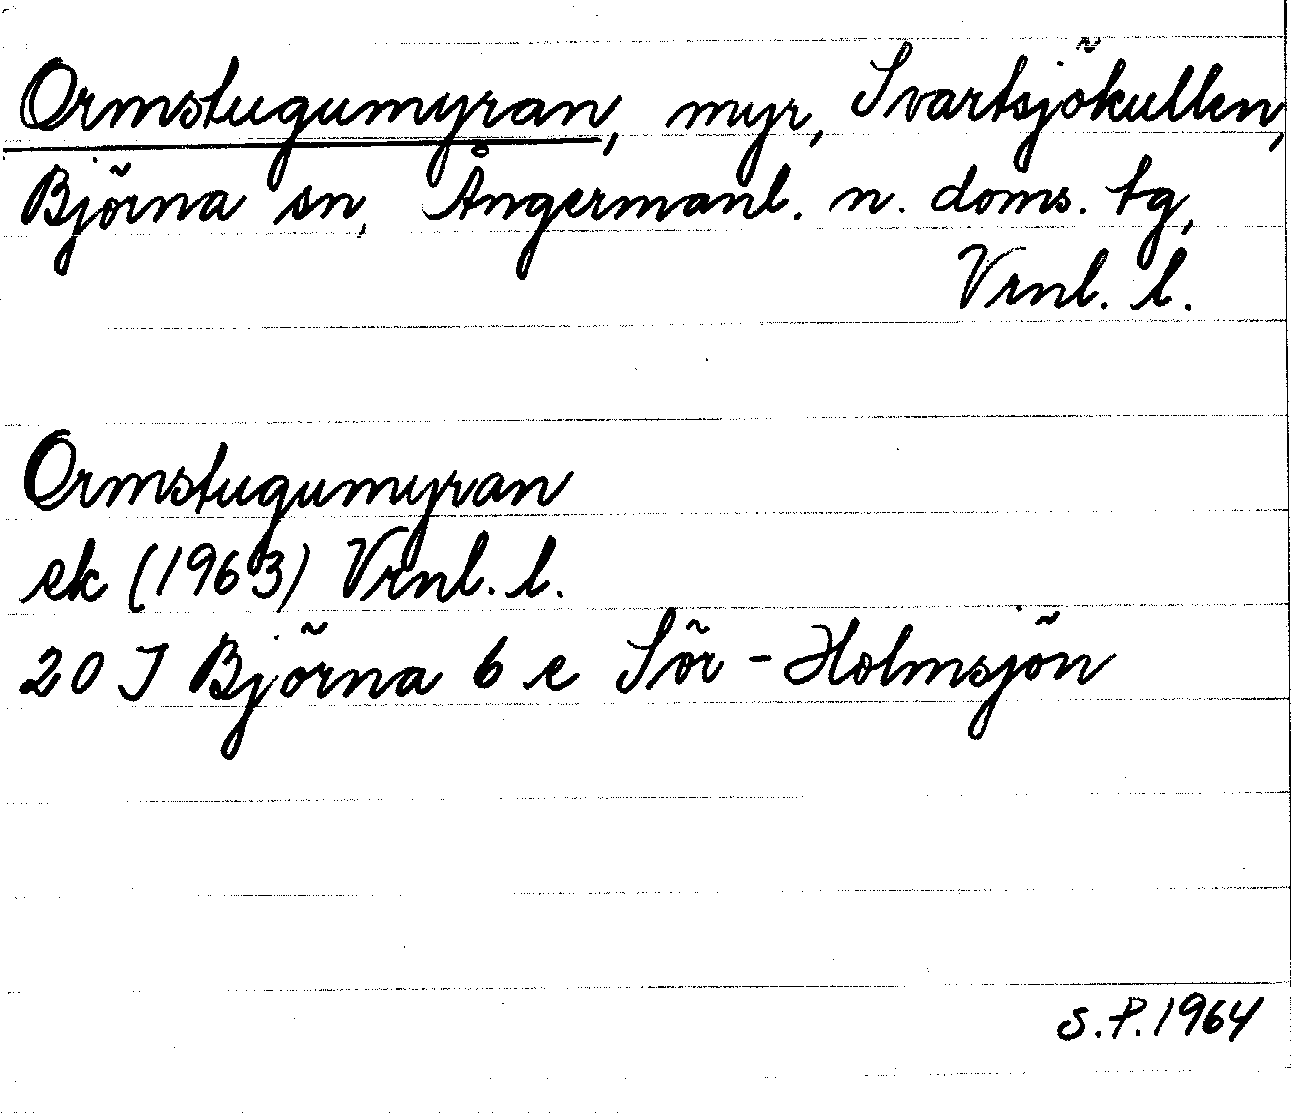 Ormstugumyran, myr, Svartsjökullen,
Björna sn, Ångermanl. n. doms. tg,
Vrnl. l.
Ormstugumyran
ek (1963) Vrnl. l.
20 J Björna 6 e Sör-Holmsjön
S.P. 1964